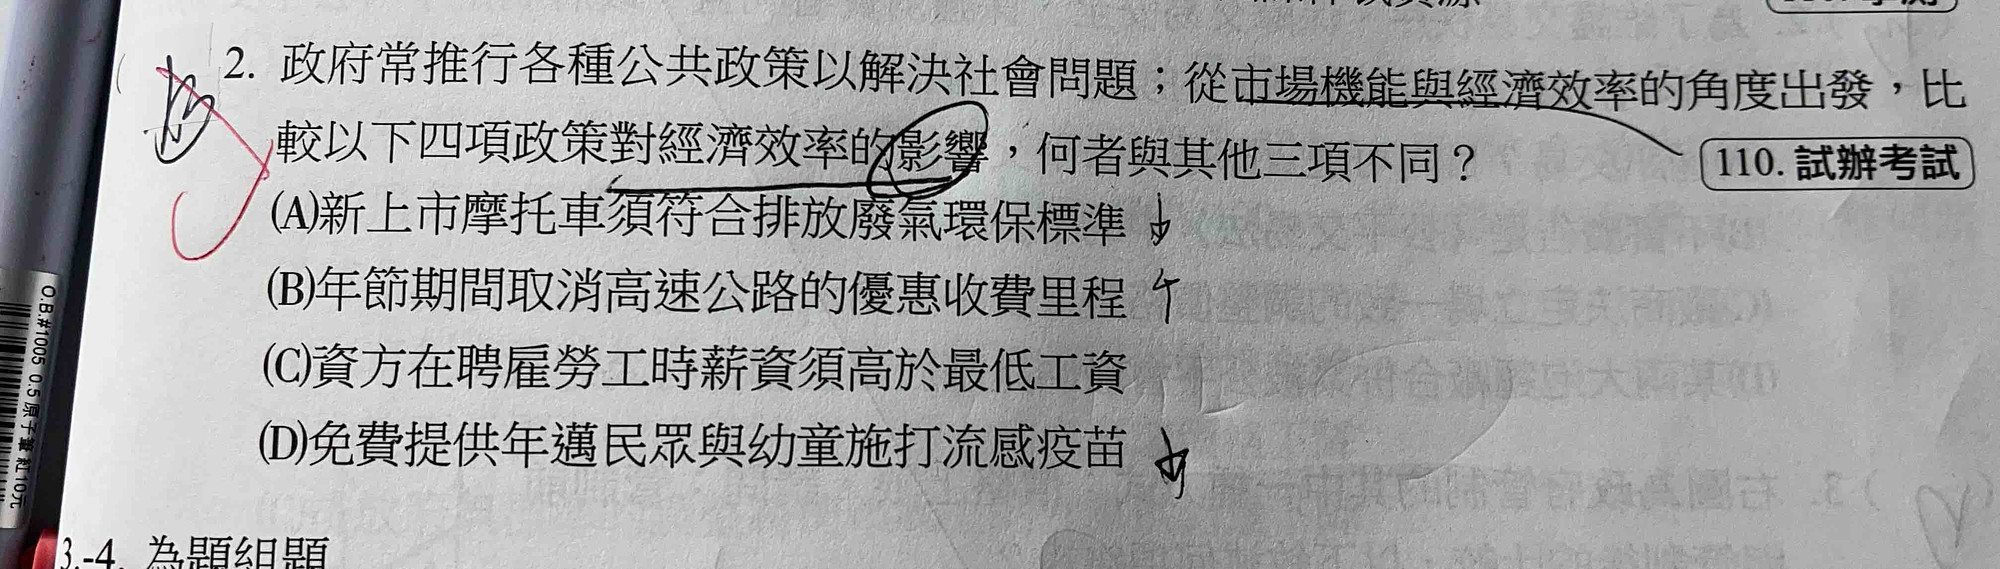 2. 政府常推行各種公共政策以解決社會問題；從市場機能與經濟效率的角度出發，比
較以下四項政策對經濟效率的影響，何者與其他三項不同？ 110. 試辦考試
(A)新上市摩托車須符合排放廢氣環保標準 ↓
(B)年節期間取消高速公路的優惠收費里程 ↑
(C)資方在聘雇勞工時薪資須高於最低工資
(D)免費提供年邁民眾與幼童施打流感疫苗 ↓
3.-4. 為題組題
O.B.#1005 0.5 原子筆 紅10元